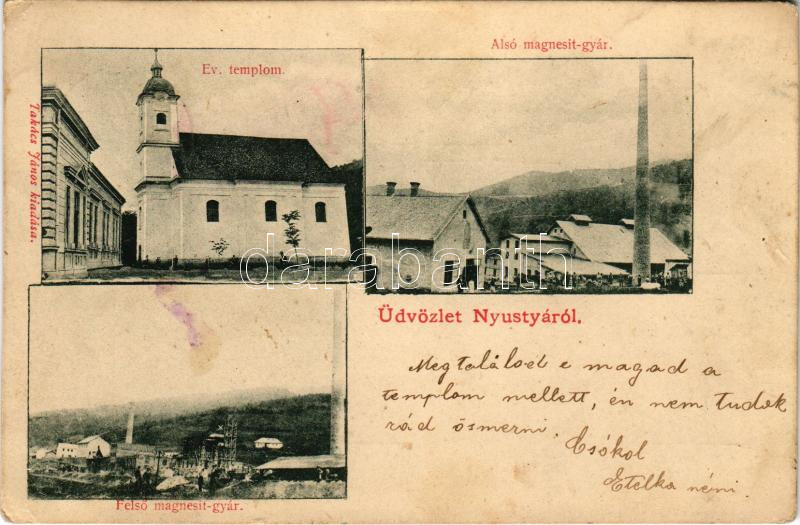 Takács János kiadása.
Ev. templom.
Alsó magnesit-gyár.
darabanth
Üdvözlet Nyustyáról.
Felső magnesit-gyár.
Megtalálod e magad a
templom mellett, én nem tudok
rád ösmerni.
Csókol
Etelka néni.